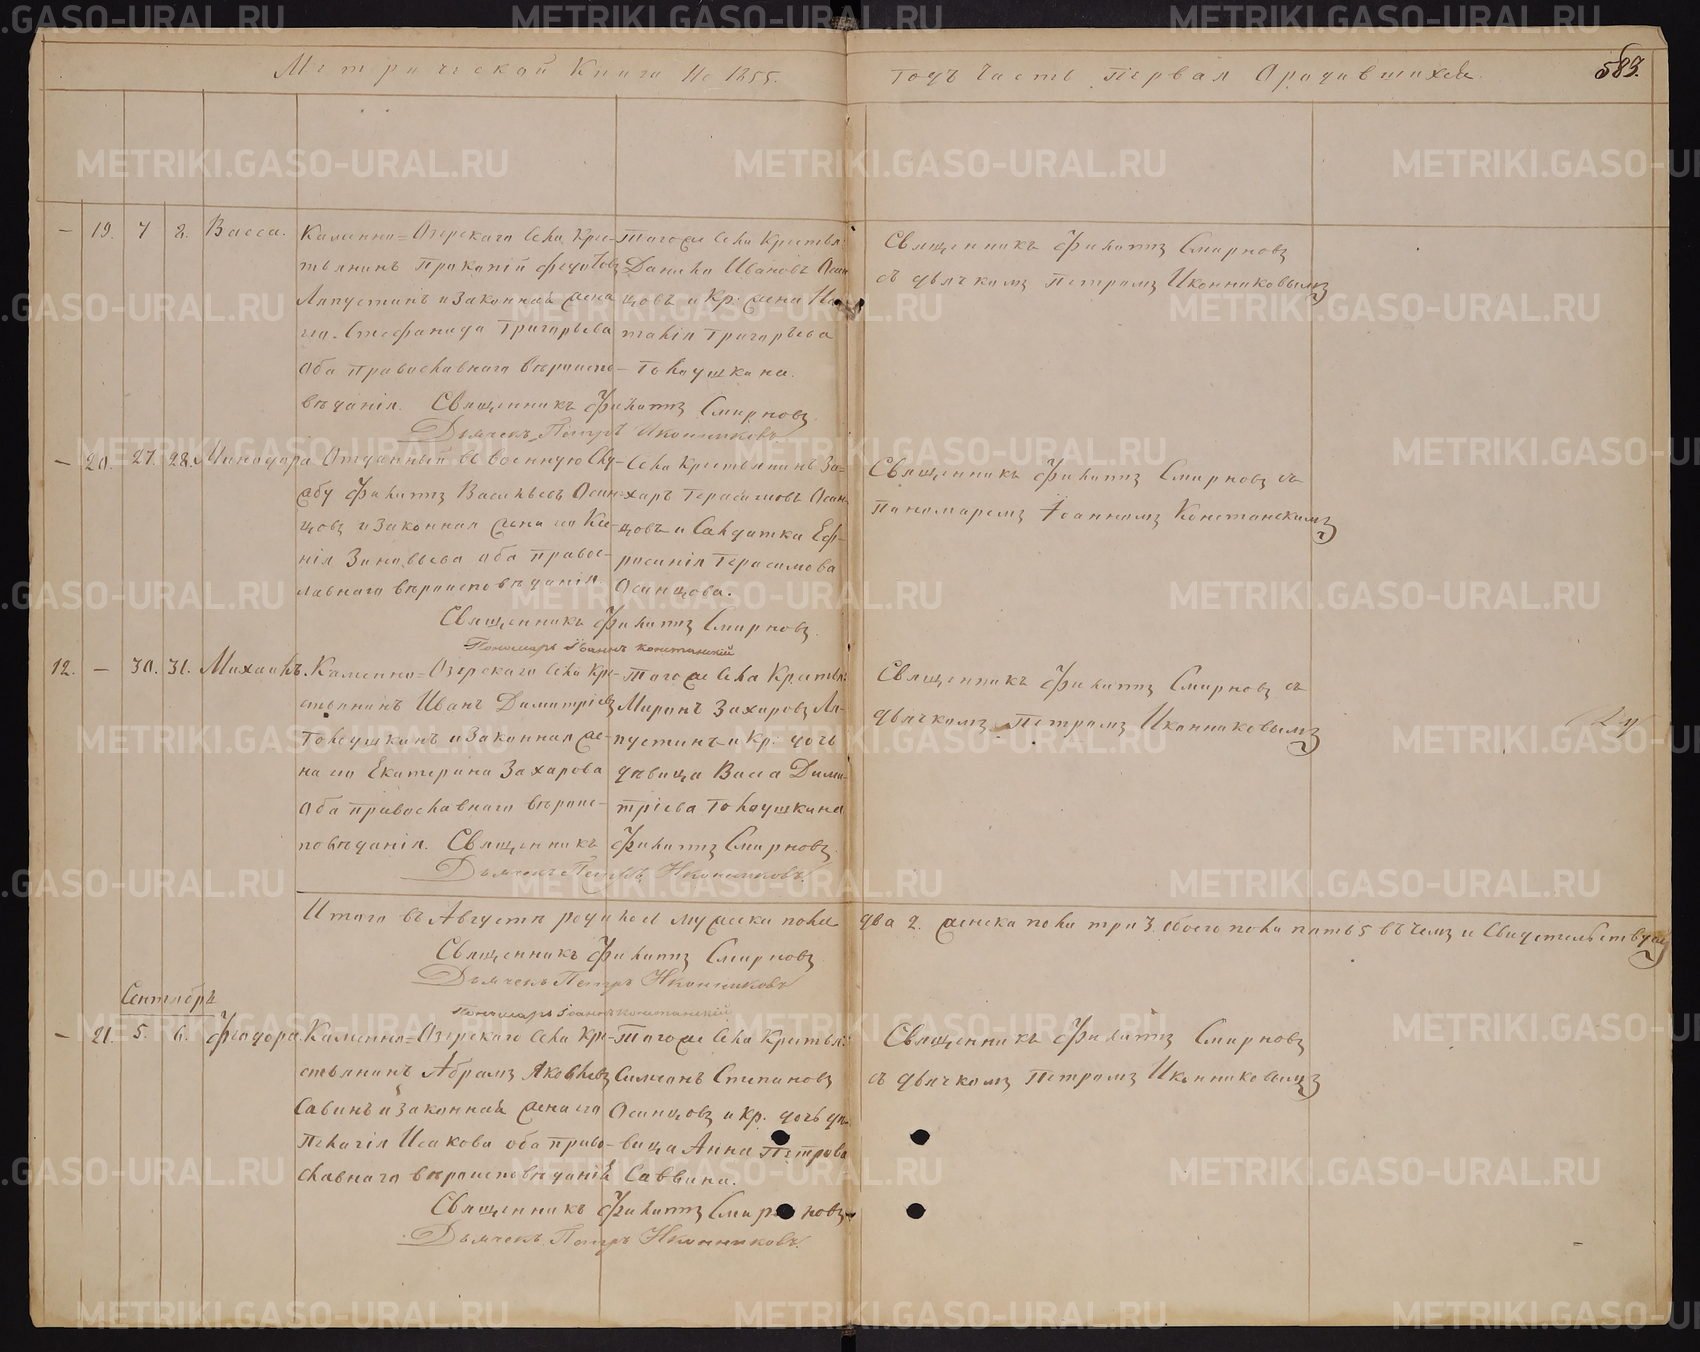 Метрической Книги На 1855. годъ Часть Первая О родившихся.
583.
— 19. 7 8. Васса.
Каменно=Озерскаго Села Кре-
стьянинъ Прокопій Федотовъ
Лапустинъ и Законная жена
его Стефанида Григорьева
оба православнаго вѣроиспо-
вѣданія. Священникъ Филиппъ Смирновъ.
Дьячекъ Петръ Иконниковъ
Тогоже Села Крестья:
Данило Ивановъ Осин
цовъ и Кр: жена На
талія Григорьева
Толоушкина.
Священникъ Филиппъ Смирновъ
съ дьячкомъ Петромъ Иконниковымъ
— 20. 27. 28. Минодора
Отданный въ военную Слу-
жбу Филиппъ Васильевъ Осин-
цовъ и Законная жена его Ки-
нія Зиновьева оба правос-
лавнаго вѣроисповѣданія.
Села Крестьянинъ За-
харъ Герасимовъ Осин
цовъ и Салдатка Еф-
росинія Герасимова
Осинцова.
Священникъ Филиппъ Смирновъ.
Пономарь Іоаннъ Констанскій
Священникъ Филиппъ Смирновъ съ
Пономаремъ Іоанномъ Констанскимъ
12. — 30. 31. Михаилъ.
Каменно=Озерскаго Села Кре-
стьянинъ Иванъ Димитріевъ
Толоушкинъ и Законная же-
на его Екатерина Захарова
оба православнаго вѣроис-
повѣданія. Священникъ Филиппъ Смирновъ.
Дьячекъ Петръ Иконниковъ
Тогоже Села Крестья:
Миронъ Захаровъ Ла-
пустинъ и Кр: дочь
дѣвица Васса Дими-
тріева Толоушкина
Священникъ Филиппъ Смирновъ съ
дьячкомъ Петромъ Иконниковымъ
Итого въ Августѣ родилось мужеска пола два 2. женска пола три 3. обоего пола пять 5 въ чемъ и Свидетельствуе
Священникъ Филиппъ Смирновъ
Дьячекъ Петръ Иконниковъ
Пономарь Іоаннъ Констанскій
Сентябрь
— 21. 5. 6. Феодора.
Каменно=Озерскаго Села Кре-
стьянинъ Абрамъ Яковлевъ
Савинъ и Законная жена его
Пелагія Исакова оба право-
славнаго вѣроисповѣданія
Тогоже Села Крестья:
Симеонъ Степановъ
Осинцовъ и Кр. дочь дѣ-
вица Анна Петрова
Саввина.
Священникъ Филиппъ Смирновъ
Дьячекъ Петръ Иконниковъ
Священникъ Филиппъ Смирновъ
съ дьячкомъ Петромъ Иконниковымъ
METRIKI.GASO-URAL.RU